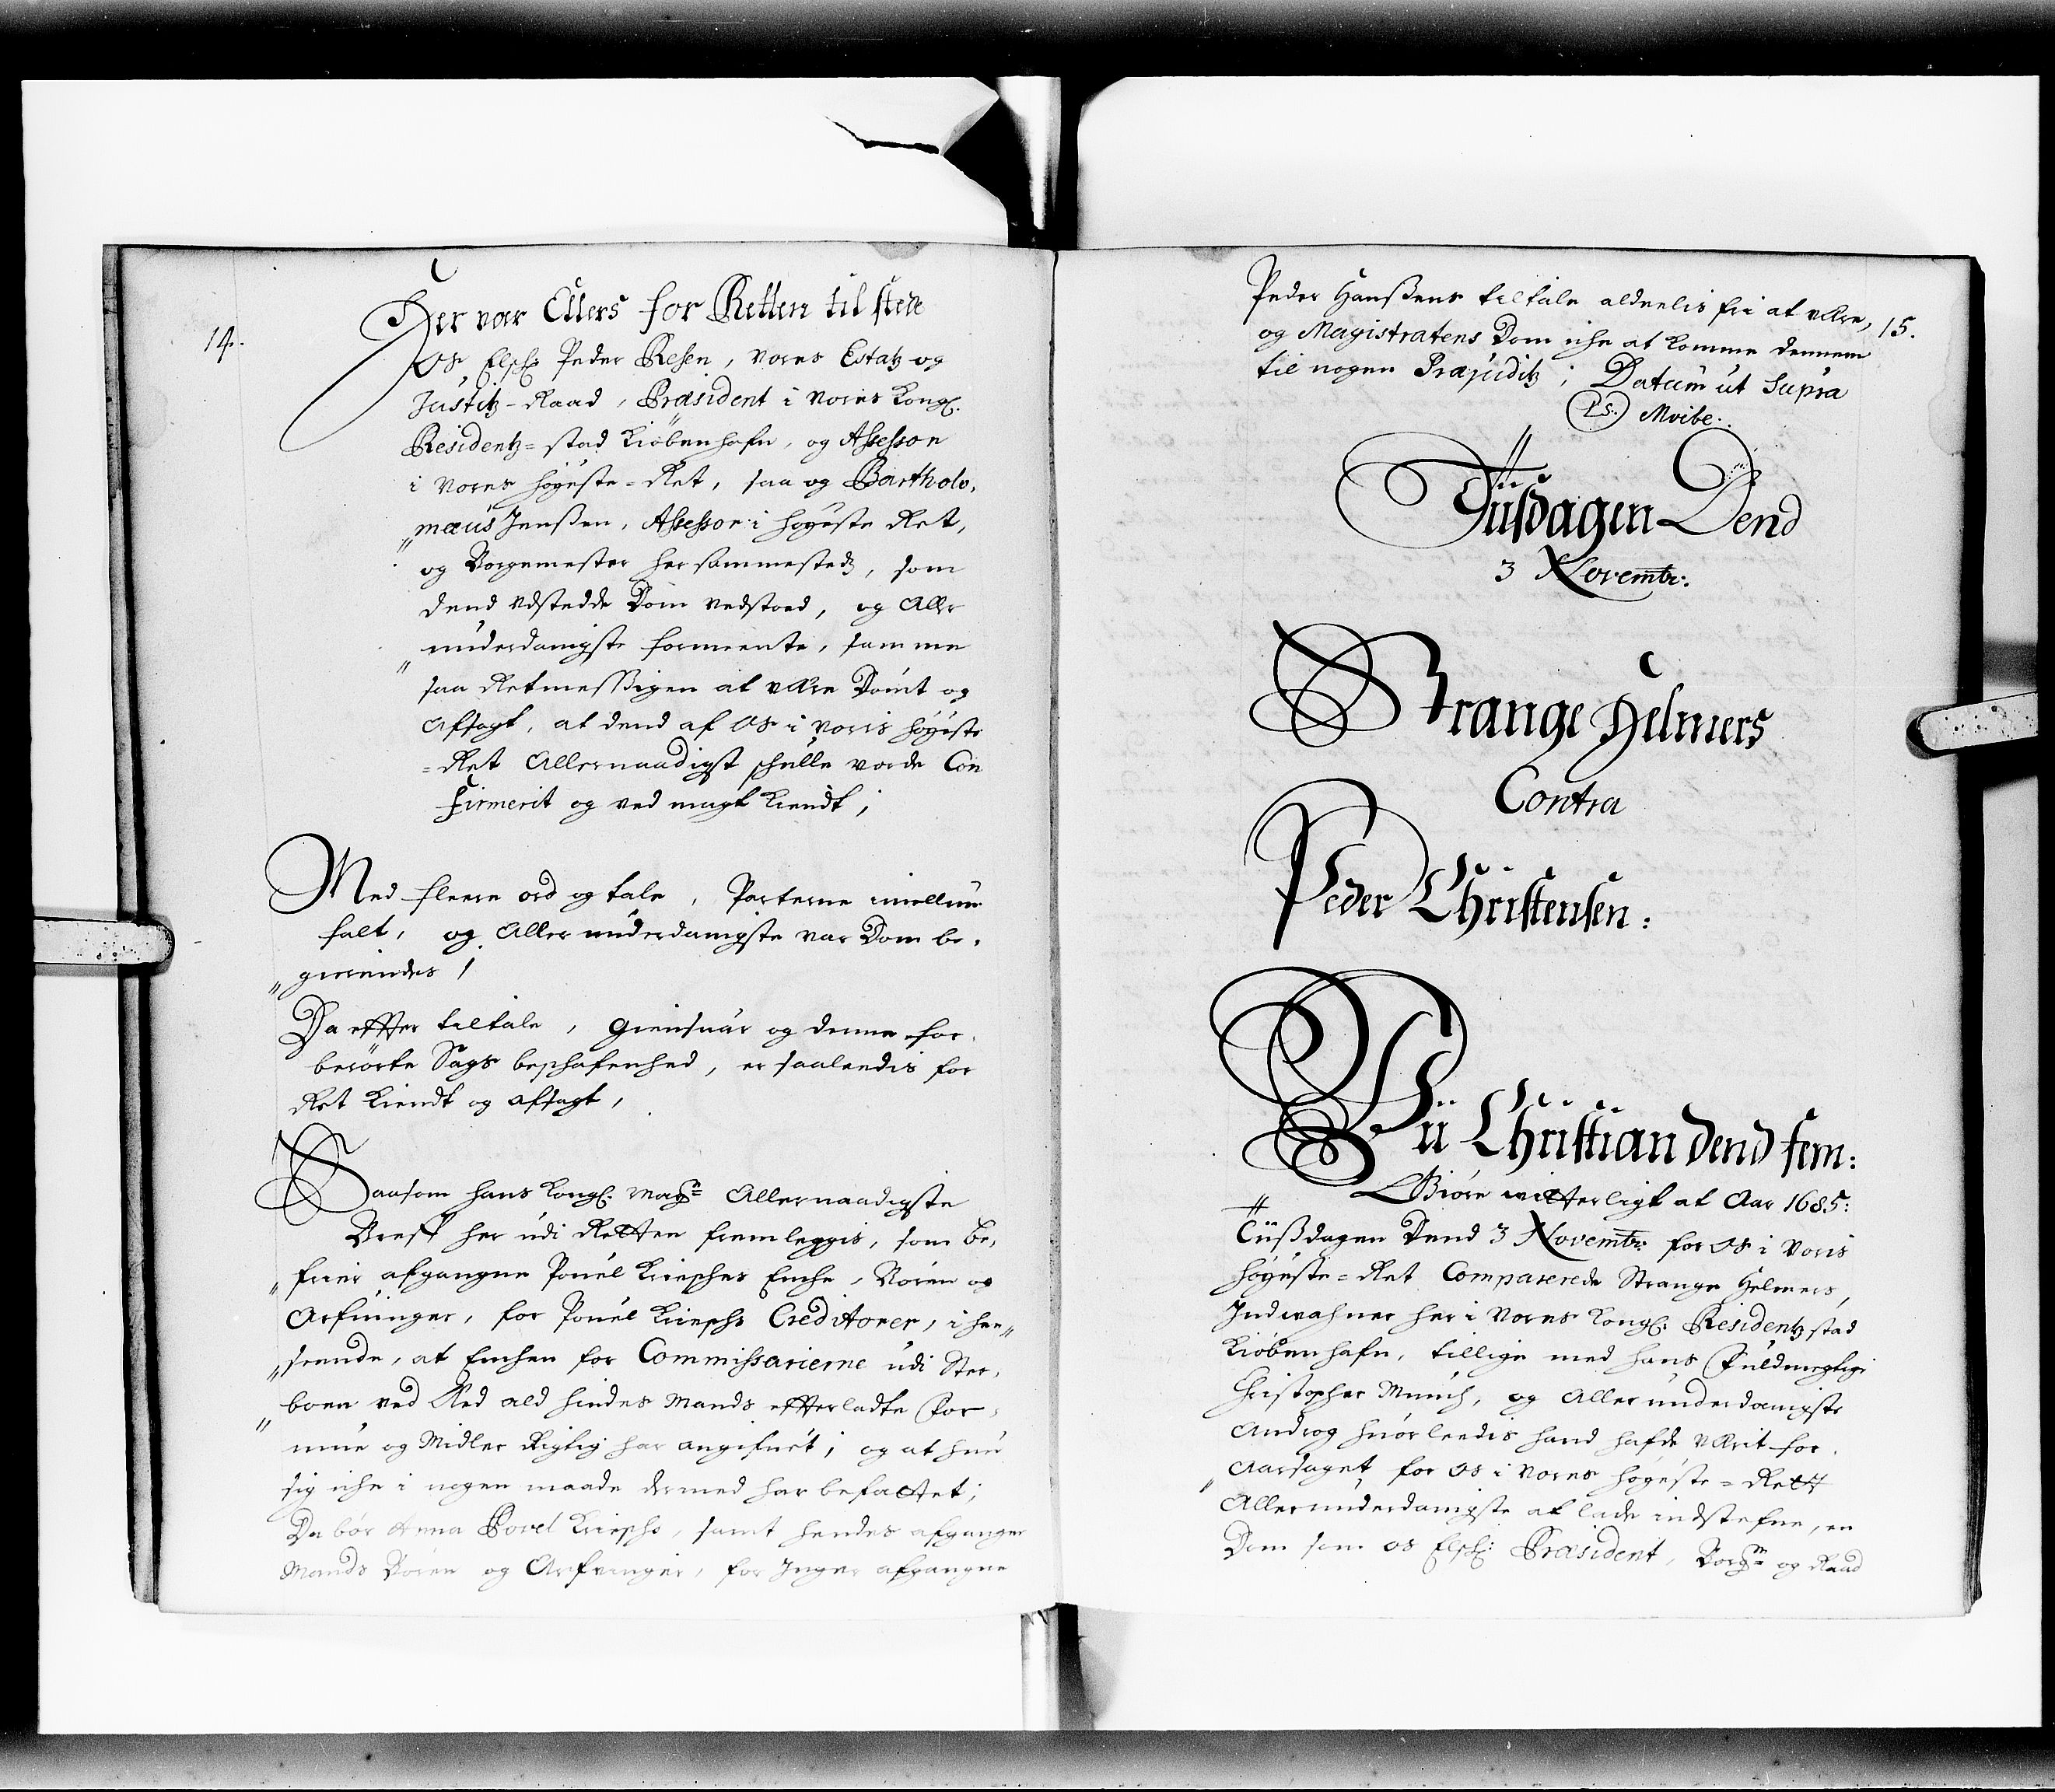 14.
Her var Ellers for Retten til stede
Os Elsk: Peder Resen, Vores Estatz og
Justitz-Raad, Præsident i Vores Kongl:
Residentz=stad Kiöbenhafn, og Assessor
i Vores höyeste=Ret, saa og Bartholo,
mæus Jenßen, Assessor i höyeste Ret,
„og Borgemester her sammestedz, som
dend udstedde Dom vedstoed, og Aller
underdanigste formeente, samme
„saa Retmessigen at være Dömt og
Afsagt, at dend af Os i Voris höyeste
=Ret Allernaadigst skulle vorde Con
firmerit og ved magt kiendt;
Med fleere ord og tale, Parterne imellum
falt, og Aller underdanigste var Dom be,
„gierendes;
Da effter tiltale, giensuar og denne for,
berörte Sags beskafenhed, er saaledis for
Ret kiendt og afsagt,
Saasom hans Kongl: May:ts Allernaadigste
Breff her udi Retten fremleggis, som be,
„frier afgangne Pouel Kriepkes Enche, Börn og
Arfuinger, for Pouel Kriepks Creditorer, i hen„
„seende, at Enchen for Commissarierne udi Ster,
boen ved Eed ald hindes Mands effterladte For,
„mue og Midler Rigtig har angifuet; og at hun
sig iche i nogen maade dermed har befattet;
Da bör Anna Povel Kriepks, samt hendes afganger
Mands Börn og Arfvinger, for Inger afgangne
15.
Peder Hanßens tiltale aldeelis fri at være,
og Magistratens Dom iche at komme dennem
til nogen Præjuditz; Datum ut Supra
LS: Moibe:
Tüsdagen Dend
3 Novembr:
Strange Helmers
Contra
Peder Christensen:
Vii Christian dend fem:
Giöre witterligt at Aar 1685:
Tüßdagen Dend 3 Novembr: for Os i Voris
höyeste=Ret Comparerede Strange Helmers,
Indwahner her i Vores Kongl: Residentzstad
Kiöbenhafn, tillige med hans Fuldmegtige
Christopher Munch, og Aller underdanigste
Androg huorleedis hand hafde værit for,
„aarsaget for Os i Vores höyeste=Rett
Allerunderdanigste at lade indstefne, en
Dom som os Elsk: Præsident, Borgm: og Raad